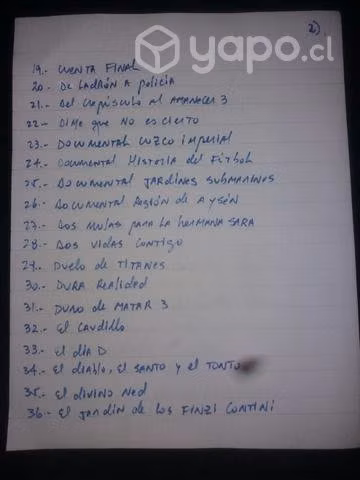 yapo.cl
2)
19.- CUENTA FINAL
20.- DE LADRÓN A POLICIA
21.- DEL CREPÚSCULO AL AMANECER 3
22.- DIME QUE NO ES CIERTO
23.- DOCUMENTAL CUZCO IMPERIAL
24.- DOCUMENTAL HISTORIA DEL FÚTBOL
25.- DOCUMENTAL JARDINES SUBMARINOS
26.- DOCUMENTAL REGIÓN DE AYSÉN
27.- DOS MULAS PARA LA HERMANA SARA
28.- DOS VIDAS CONTIGO
29.- DUELO DE TITANES
30.- DURA REALIDAD
31.- DURO DE MATAR 3
32.- El CAUDILLO
33.- El DÍA D
34.- El DIABLO, El SANTO Y El TONTO
35.- El DIVINO NED
36.- El JARDÍN DE LOS FINZI CONTINI